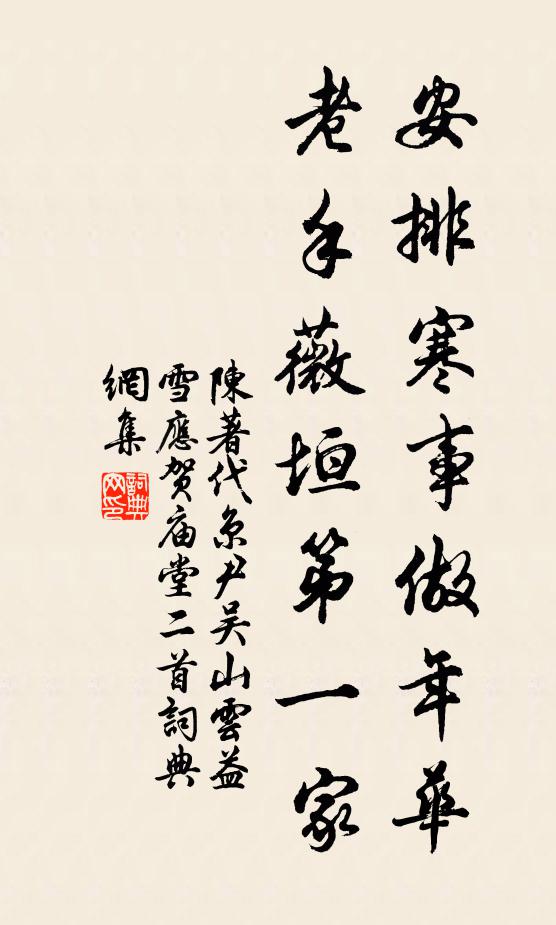 安排寒事做年華
老手薇垣第一家
陳著代京尹吳山雲益
雪應賀庙堂二首詞典
網集
詞典
网印